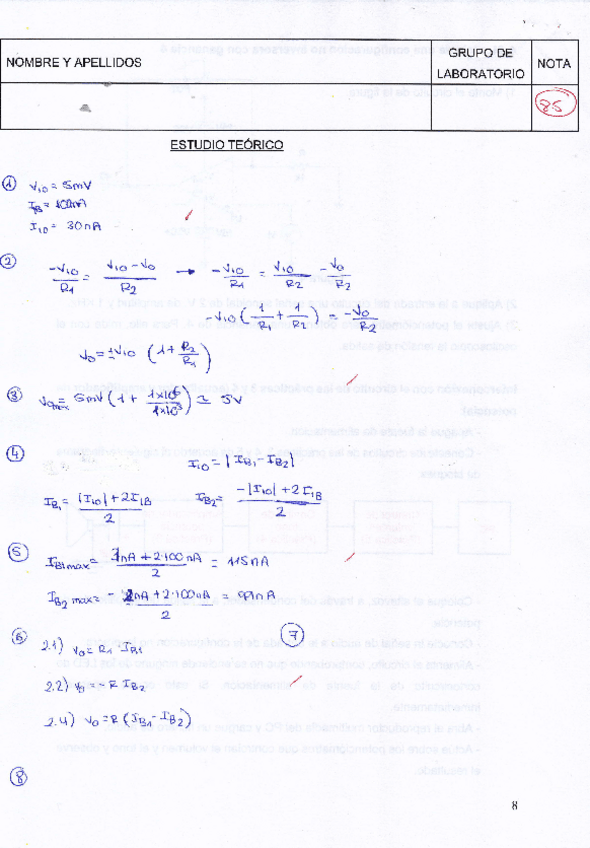 NOMBRE Y APELLIDOS
GRUPO DE
LABORATORIO
NOTA
85
ESTUDIO TEÓRICO
① V₁₀ = 5mV
I_B = 100nA
I₁₀ = 30nA
② -V₁₀/R₁ = (V₁₀-V₀)/R₂ → -V₁₀/R₁ = V₁₀/R₂ - V₀/R₂
-V₁₀ (1/R₁ + 1/R₂) = -V₀/R₂
V₀ = ±V₁₀ (1 + R₂/R₁)
③ V₀max = 5mV (1 + 1x10⁶/1x10³) ≃ 5V
④ I₁₀ = |I_B₁ - I_B₂|
I_B₁ = (|I₁₀| + 2I₁B)/2 I_B₂ = (-|I₁₀| + 2I₁B)/2
⑤ I_B1max = + 2·100nA / 2 = 115nA
I_B2 max = - + 2·100nA / 2 =
⑥ 2.1) V₀ = R₁ · I_B1 ⑦
2.2) V₀ = -R I_B2
2.4) V₀ = R (I_B1 - I_B2)
⑧
8